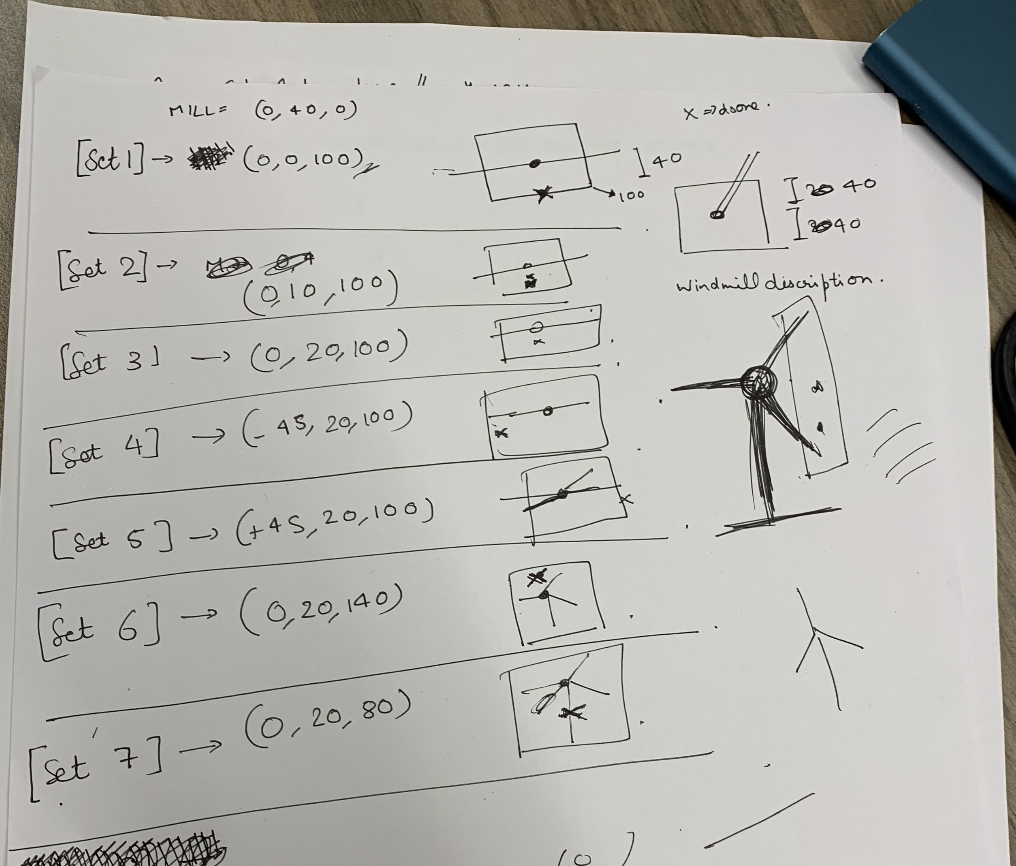 MILL = (0, 40, 0)
x => drone.
[Set 1] → (0, 0, 100)
40
100
40
40
[Set 2] →
(0, 10, 100)
windmill description.
[Set 3] → (0, 20, 100)
[Set 4] → (- 45, 20, 100)
[Set 5] → (+45, 20, 100)
[Set 6] → (0, 20, 140)
[Set 7] → (0, 20, 80)
(0